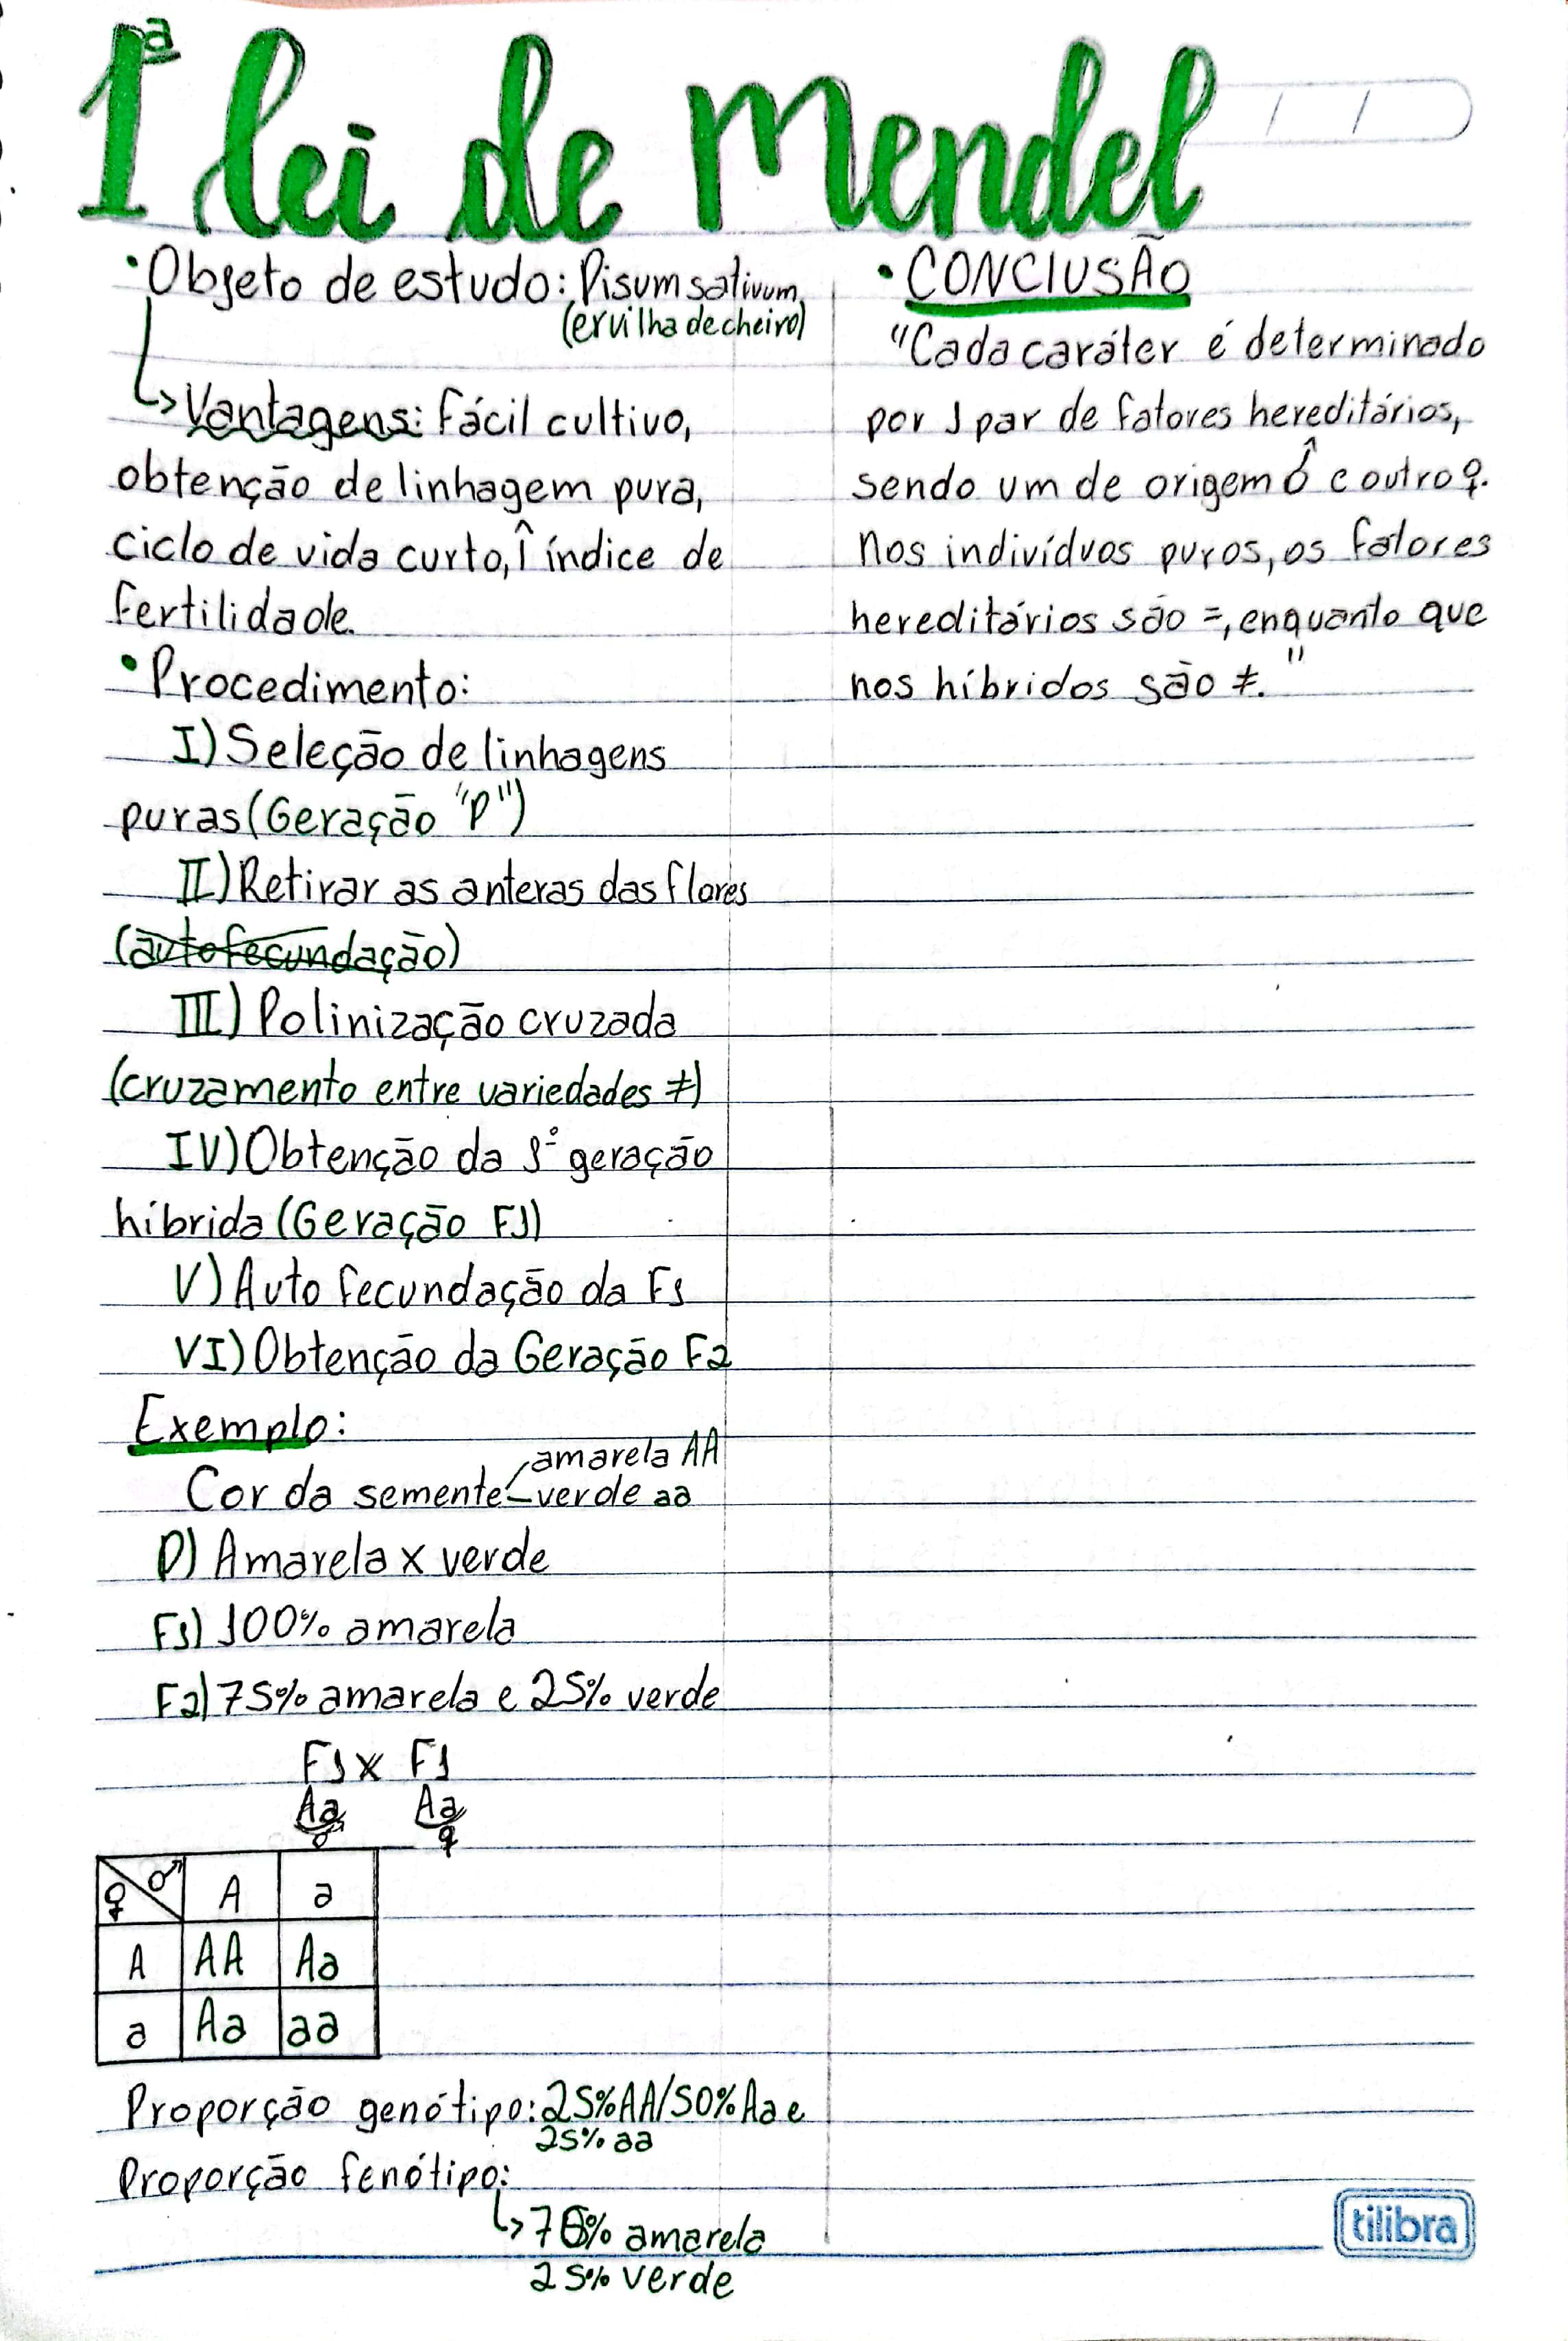 1ª lei de Mendel
• Objeto de estudo: Pisum sativum
(ervilha de cheiro)
↳ Vantagens: Fácil cultivo,
obtenção de linhagem pura,
ciclo de vida curto, ↑ índice de
fertilidade.
• Procedimento:
I) Seleção de linhagens
puras (Geração "P")
II) Retirar as anteras das flores
(autofecundação)
III) Polinização cruzada
(cruzamento entre variedades ≠)
IV) Obtenção da 1ª geração
híbrida (Geração F1)
V) Auto fecundação da F1
VI) Obtenção da Geração F2
Exemplo:
amarela AA
Cor da semente verde aa
P) Amarela x verde
F1) 100% amarela
F2) 75% amarela e 25% verde
F1 x F1
Aa Aa
♂ ♀
♀ ♂ A a
A AA Aa
a Aa aa
Proporção genótipo: 25% AA/50% Aa e
25% aa
Proporção fenótipo:
↳ 75% amarela
25% verde
• CONCLUSÃO
"Cada caráter é determinado
por 1 par de fatores hereditários,
sendo um de origem ♂ e outro ♀.
Nos indivíduos puros, os fatores
hereditários são =, enquanto que
nos híbridos são ≠."
tilibra